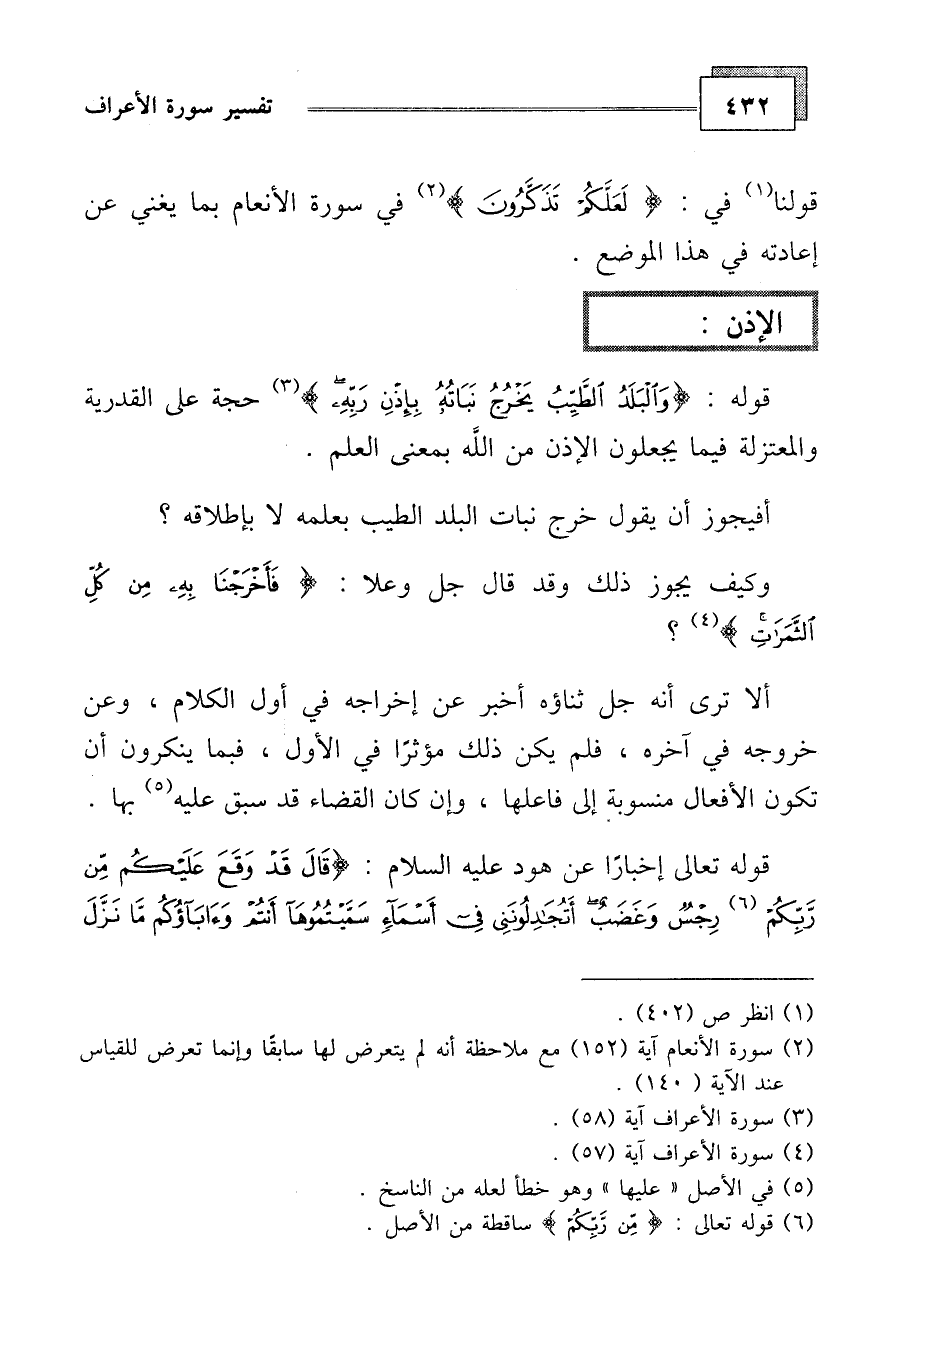 ٤٣٢ تفسير سورة الأعراف
قولنا(١) في : ﴿ لَعَلَّكُمْ تَذَكَّرُونَ ﴾(٢) في سورة الأنعام بما يغني عن
إعادته في هذا الموضع .
الإذن :
قوله : ﴿وَٱلْبَلَدُ ٱلطَّيِّبُ يَخْرُجُ نَبَاتُهُۥ بِإِذْنِ رَبِّهِۦۖ ﴾(٣) حجة على القدرية
والمعتزلة فيما يجعلون الإذن من اللَّه بمعنى العلم .
أفيجوز أن يقول خرج نبات البلد الطيب بعلمه لا بإطلاقه ؟
وكيف يجوز ذلك وقد قال جل وعلا : ﴿ فَأَخْرَجْنَا بِهِۦ مِن كُلِّ
ٱلثَّمَرَٰتِۚ ﴾(٤) ؟
ألا ترى أنه جل ثناؤه أخبر عن إخراجه في أول الكلام ، وعن
خروجه في آخره ، فلم يكن ذلك مؤثرًا في الأول ، فبما ينكرون أن
تكون الأفعال منسوبة إلى فاعلها ، وإن كان القضاء قد سبق عليه(٥) بها .
قوله تعالى إخبارًا عن هود عليه السلام : ﴿قَالَ قَدْ وَقَعَ عَلَيْكُم مِّن
رَّبِّكُمْ (٦) رِجْسٌ وَغَضَبٌۖ أَتُجَٰدِلُونَنِى فِىٓ أَسْمَآءٍ سَمَّيْتُمُوهَآ أَنتُمْ وَءَابَآؤُكُم مَّا نَزَّلَ
(١) انظر ص (٤٠٢) .
(٢) سورة الأنعام آية (١٥٢) مع ملاحظة أنه لم يتعرض لها سابقًا وإنما تعرض للقياس
عند الآية ( ١٤٠) .
(٣) سورة الأعراف آية (٥٨) .
(٤) سورة الأعراف آية (٥٧) .
(٥) في الأصل « عليها » وهو خطأ لعله من الناسخ .
(٦) قوله تعالى : ﴿ مِّن رَّبِّكُمْ ﴾ ساقطة من الأصل .